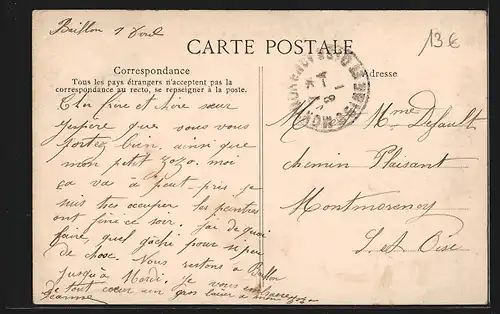 Baillon 1 Août
13 €
CARTE POSTALE
Correspondance
Tous les pays étrangers n'acceptent pas la
correspondance au recto, se renseigner à la poste.
Adresse
sœur
j'espère que vous vous
portez bien, ainsi que
mon petit zozo. moi
ça va à peut-pris je
suis très occuper les
ont fini ce soir, j'ai de quoi
faire, quel pour si peu
de chose. Nous restons à Baillon
jusqu'à Mardi. Je vous embrasse
de tout cœur un gros baiser à mon zozo
Jeanne
Mme
Chemin Plaisant
Montmorency
S. et Oise